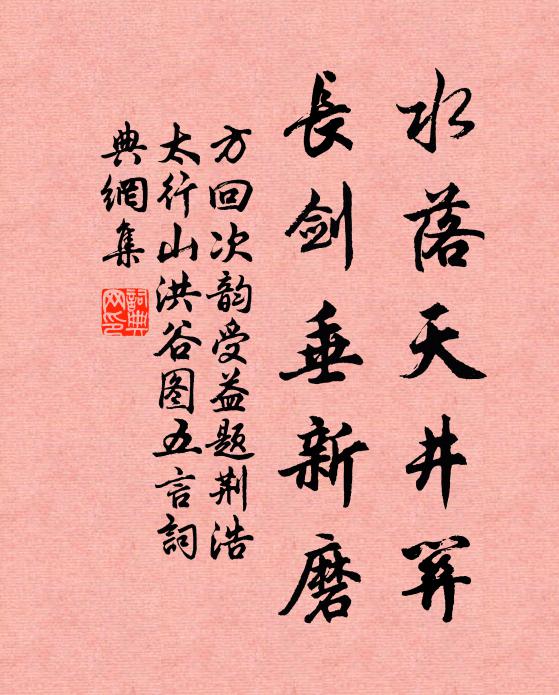 水落天井
長劍垂新磨
方回次韵受益题荆浩
太行山洪谷图五言詞
典網集
詞典
网印